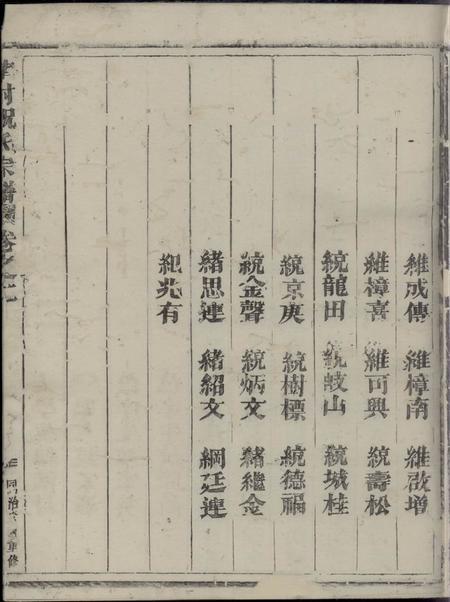 維成傳 維樟南 維啟增
維樟喜 維可興 統壽松
統龍田 統岐山 統城桂
統京庚 統樹標 統德福
統金聲 統炳文 緒繼金
緒思連 緒紹文 綱廷連
紀兆有
村祝氏宗譜 卷之一
同治 重修